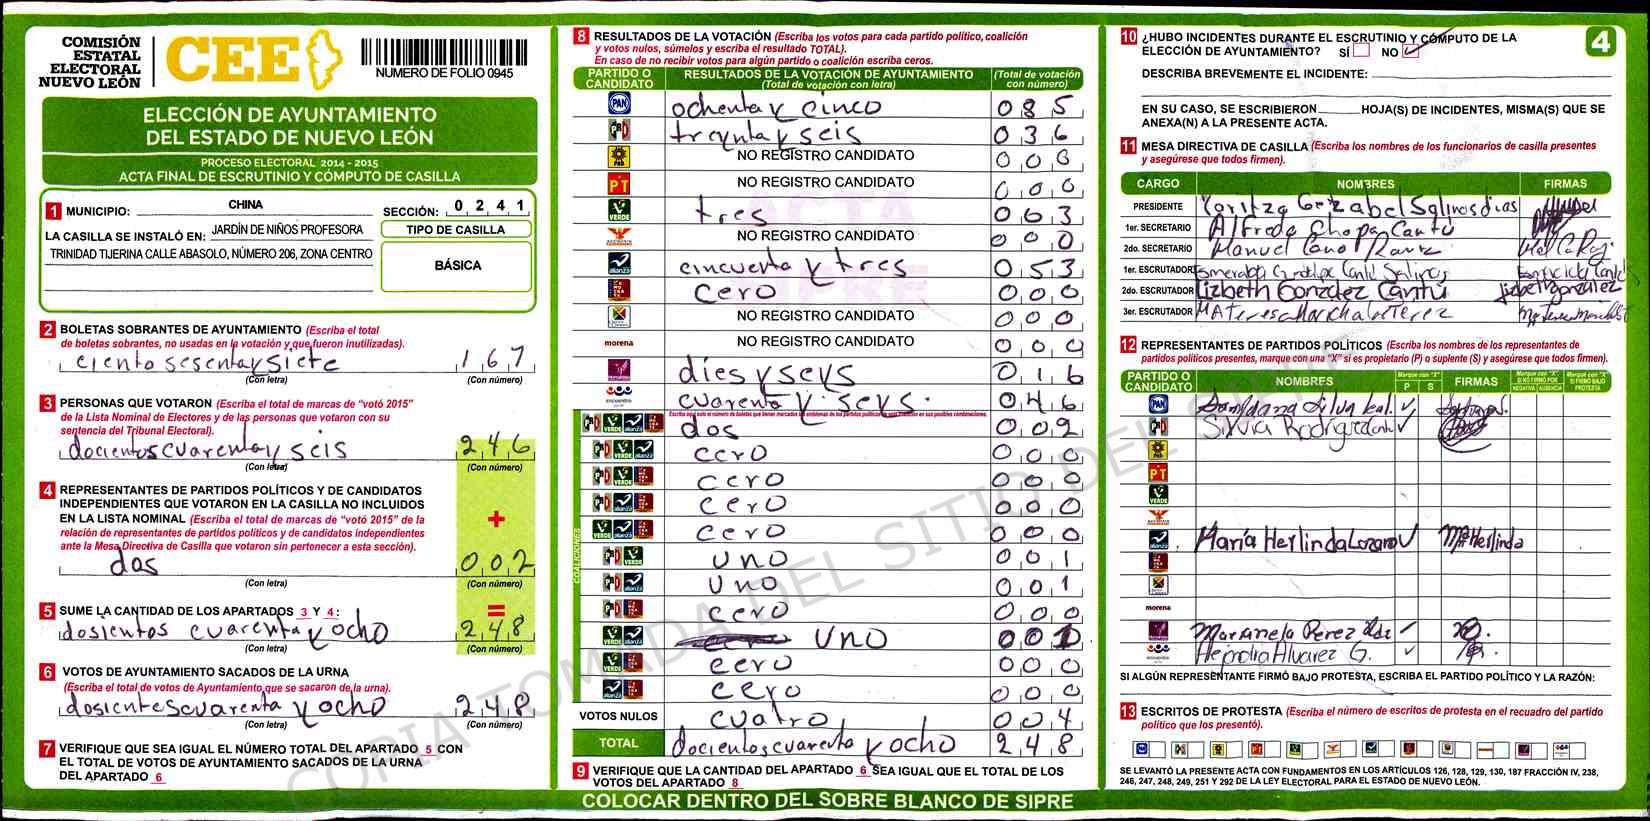 COMISIÓN
ESTATAL
ELECTORAL
NUEVO LEÓN
CEE
NUMERO DE FOLIO 0945
ELECCIÓN DE AYUNTAMIENTO
DEL ESTADO DE NUEVO LEÓN
PROCESO ELECTORAL 2014 - 2015
ACTA FINAL DE ESCRUTINIO Y CÓMPUTO DE CASILLA
1 MUNICIPIO: CHINA SECCIÓN: 0 2 4 1
LA CASILLA SE INSTALÓ EN: JARDÍN DE NIÑOS PROFESORA
TRINIDAD TIJERINA CALLE ABASOLO, NÚMERO 206, ZONA CENTRO
TIPO DE CASILLA
BÁSICA
2 BOLETAS SOBRANTES DE AYUNTAMIENTO (Escriba el total
de boletas sobrantes, no usadas en la votación y que fueron inutilizadas).
ciento sesenta y siete 1 6 7
(Con letra) (Con número)
3 PERSONAS QUE VOTARON (Escriba el total de marcas de "votó 2015"
de la Lista Nominal de Electores y de las personas que votaron con su
sentencia del Tribunal Electoral).
docientos cuarenta y seis 2 4 6
(Con letra) (Con número)
4 REPRESENTANTES DE PARTIDOS POLÍTICOS Y DE CANDIDATOS
INDEPENDIENTES QUE VOTARON EN LA CASILLA NO INCLUIDOS
EN LA LISTA NOMINAL (Escriba el total de marcas de "votó 2015" de la
relación de representantes de partidos políticos y de candidatos independientes
ante la Mesa Directiva de Casilla que votaron sin pertenecer a esta sección).
+
dos 0 0 2
(Con letra) (Con número)
5 SUME LA CANTIDAD DE LOS APARTADOS 3 Y 4: =
dosientos cuarenta y ocho 2 4 8
(Con letra) (Con número)
6 VOTOS DE AYUNTAMIENTO SACADOS DE LA URNA
(Escriba el total de votos de Ayuntamiento que se sacaron de la urna).
dosientos cuarenta y ocho 2 4 8
(Con letra) (Con número)
7 VERIFIQUE QUE SEA IGUAL EL NÚMERO TOTAL DEL APARTADO 5 CON
EL TOTAL DE VOTOS DE AYUNTAMIENTO SACADOS DE LA URNA
DEL APARTADO 6
8 RESULTADOS DE LA VOTACIÓN (Escriba los votos para cada partido político, coalición
y votos nulos, súmelos y escriba el resultado TOTAL).
En caso de no recibir votos para algún partido o coalición escriba ceros.
PARTIDO O CANDIDATO RESULTADOS DE LA VOTACIÓN DE AYUNTAMIENTO (Total de votación con letra) (Total de votación con número)
PAN ochenta y cinco 0 8 5
PRD treynta y seis 0 3 6
PRD NO REGISTRO CANDIDATO 0 0 0
PT NO REGISTRO CANDIDATO 0 0 0
VERDE tres 0 0 3
NO REGISTRO CANDIDATO 0 0 0
alianza cincuenta y tres 0 5 3
cero 0 0 0
NO REGISTRO CANDIDATO 0 0 0
morena NO REGISTRO CANDIDATO 0 0 0
dies y seys 0 1 6
cuarenta y seys 0 4 6
dos 0 0 2
cero 0 0 0
cero 0 0 0
cero 0 0 0
cero 0 0 0
uno 0 0 1
uno 0 0 1
cero 0 0 0
uno 0 0 1
cero 0 0 0
cero 0 0 0
COALICIONES
VOTOS NULOS cuatro 0 0 4
TOTAL docientos cuarenta y ocho 2 4 8
9 VERIFIQUE QUE LA CANTIDAD DEL APARTADO 6 SEA IGUAL QUE EL TOTAL DE LOS
VOTOS DEL APARTADO 8
COLOCAR DENTRO DEL SOBRE BLANCO DE SIPRE
10 ¿HUBO INCIDENTES DURANTE EL ESCRUTINIO Y CÓMPUTO DE LA
ELECCIÓN DE AYUNTAMIENTO? SÍ NO
4
DESCRIBA BREVEMENTE EL INCIDENTE:
EN SU CASO, SE ESCRIBIERON HOJA(S) DE INCIDENTES, MISMA(S) QUE SE
ANEXA(N) A LA PRESENTE ACTA.
11 MESA DIRECTIVA DE CASILLA (Escriba los nombres de los funcionarios de casilla presentes
y asegúrese que todos firmen).
CARGO NOMBRES FIRMAS
PRESIDENTE Yaritza Salinas
1er. SECRETARIO Alfredo Chapa Cantú
2do. SECRETARIO Manuel Cano
1er. ESCRUTADOR Esmeralda Salinas
2do. ESCRUTADOR Lizbeth González Cantú Lizbeth González
3er. ESCRUTADOR
12 REPRESENTANTES DE PARTIDOS POLÍTICOS (Escriba los nombres de los representantes de
partidos políticos presentes, marque con una "X" si es propietario (P) o suplente (S) y asegúrese que todos firmen).
PARTIDO O CANDIDATO NOMBRES Marque con "X" P S FIRMAS Marque con "X" SI NO FIRMÓ POR NEGATIVA AUSENCIA Marque con "X" SI FIRMÓ BAJO PROTESTA
PAN Silva
Silvia Rodriguez
PRD
PT
VERDE
alianza María Herlinda Lozano Mª Herlinda
morena
Marianela Perez
Alejandra Alvarez G.
SI ALGÚN REPRESENTANTE FIRMÓ BAJO PROTESTA, ESCRIBA EL PARTIDO POLÍTICO Y LA RAZÓN:
13 ESCRITOS DE PROTESTA (Escriba el número de escritos de protesta en el recuadro del partido
político que los presentó).
SE LEVANTÓ LA PRESENTE ACTA CON FUNDAMENTOS EN LOS ARTÍCULOS 126, 128, 129, 130, 187 FRACCIÓN IV, 238,
246, 247, 248, 249, 251 Y 292 DE LA LEY ELECTORAL PARA EL ESTADO DE NUEVO LEÓN.
COPIA TOMADA DEL SITIO DEL SIPRE